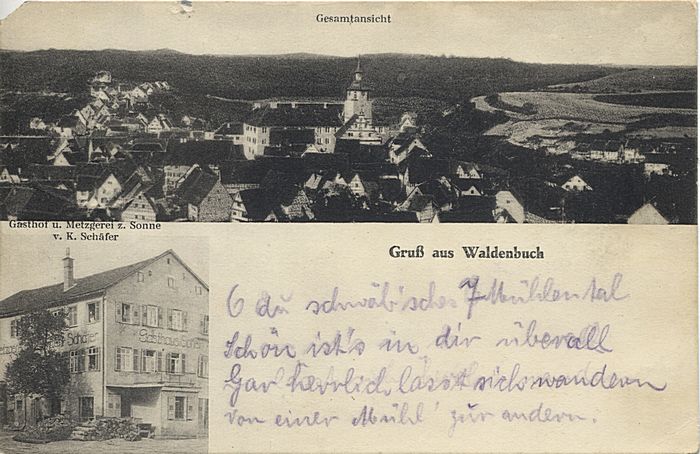 Gesamtansicht
Gasthof u. Metzgerei z. Sonne
v. K. Schäfer
Gruß aus Waldenbuch
Schäfer
Gasthaus
O du schwäb'sches 7 Mühlental
Schön ist's in dir überall
Gar herrlich lässt sichs wandern
Von einer Mühl' zur andern.